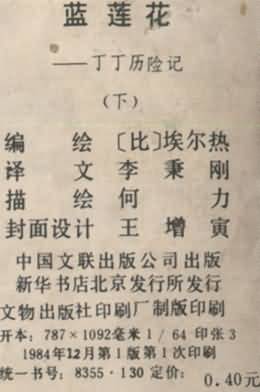 蓝莲花
——丁丁历险记
（下）
编 绘 〔比〕埃尔热
译 文 李秉刚
描 绘 何 力
封面设计 王增寅
中国文联出版公司出版
新华书店北京发行所发行
文物出版社印刷厂制版印刷
开本：787×1092毫米 1/64 印张3
1984年12月第1版第1次印刷
统一书号：8355·130 定价：0.40元